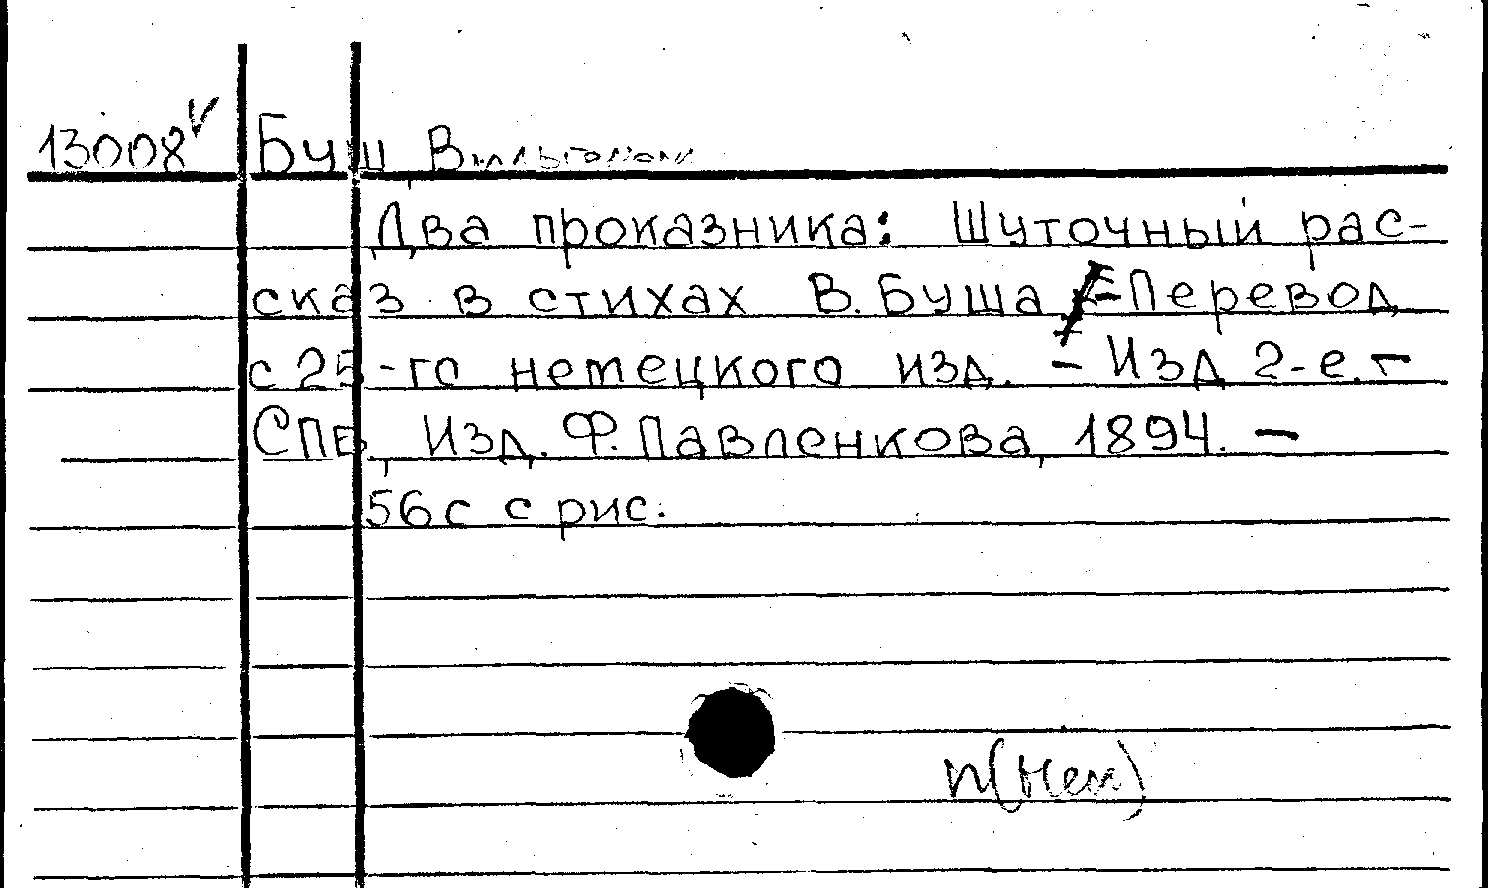 13008 Буш, Вильгельм
Два проказника: Шуточный рас-
сказ в стихах В. Буша - Перевод
с 25-го немецкого изд. - Изд 2-е. -
СПб., Изд. Ф. Павленкова, 1894. -
56 с с рис.
п(нем)